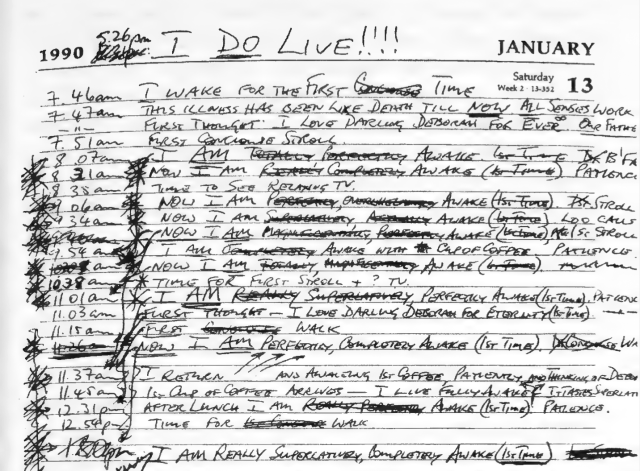 1990 5.26pm I DO LIVE!!!! JANUARY
Saturday
Week 2 · 13-352 13
7.46am I WAKE FOR THE FIRST TIME
7.47am THIS ILLNESS HAS BEEN LIKE DEATH TILL NOW ALL SENSES WORK
-"- FIRST THOUGHT: I LOVE DARLING DEBORAH FOR EVER
7.51am FIRST STROLL
8.07am I AM TOTALLY PERFECTLY AWAKE 1ST TIME
8.31am NOW I AM REALLY COMPLETELY AWAKE (1ST TIME) PATIENCE
8.38am TIME TO SEE TV.
9.06am NOW I AM PERFECTLY, OVERWHELMINGLY AWAKE (1ST TIME) 1ST STROLL
9.34am NOW I AM SUPERLATIVELY, ACTUALLY AWAKE (1ST TIME) LOO
NOW I AM PERFECTLY AWAKE (1ST TIME) STROLL
9.54am I AM COMPLETELY AWAKE WITH CUP OF COFFEE. PATIENCE.
NOW I AM TOTALLY, AWAKE (1ST TIME)
10.38am TIME FOR FIRST STROLL + ? TV.
11.01am I AM REALLY SUPERLATIVELY, PERFECTLY AWAKE (1ST TIME)
11.03am FIRST THOUGHT — I LOVE DARLING DEBORAH FOR ETERNITY (1ST TIME)
11.15am FIRST WALK
11.26am NOW I AM PERFECTLY, COMPLETELY AWAKE (1ST TIME).
11.37am I RETURN AND AWAITING 1ST COFFEE, PATIENTLY, AND THINKING OF
11.45am 1ST CUP OF COFFEE ARRIVES — I LIVE FULLY AWAKE IT TASTES
12.31pm AFTER LUNCH I AM REALLY PERFECTLY AWAKE (1ST TIME) PATIENCE.
12.54pm TIME FOR WALK
I AM REALLY SUPERLATIVELY, COMPLETELY AWAKE (1ST TIME)